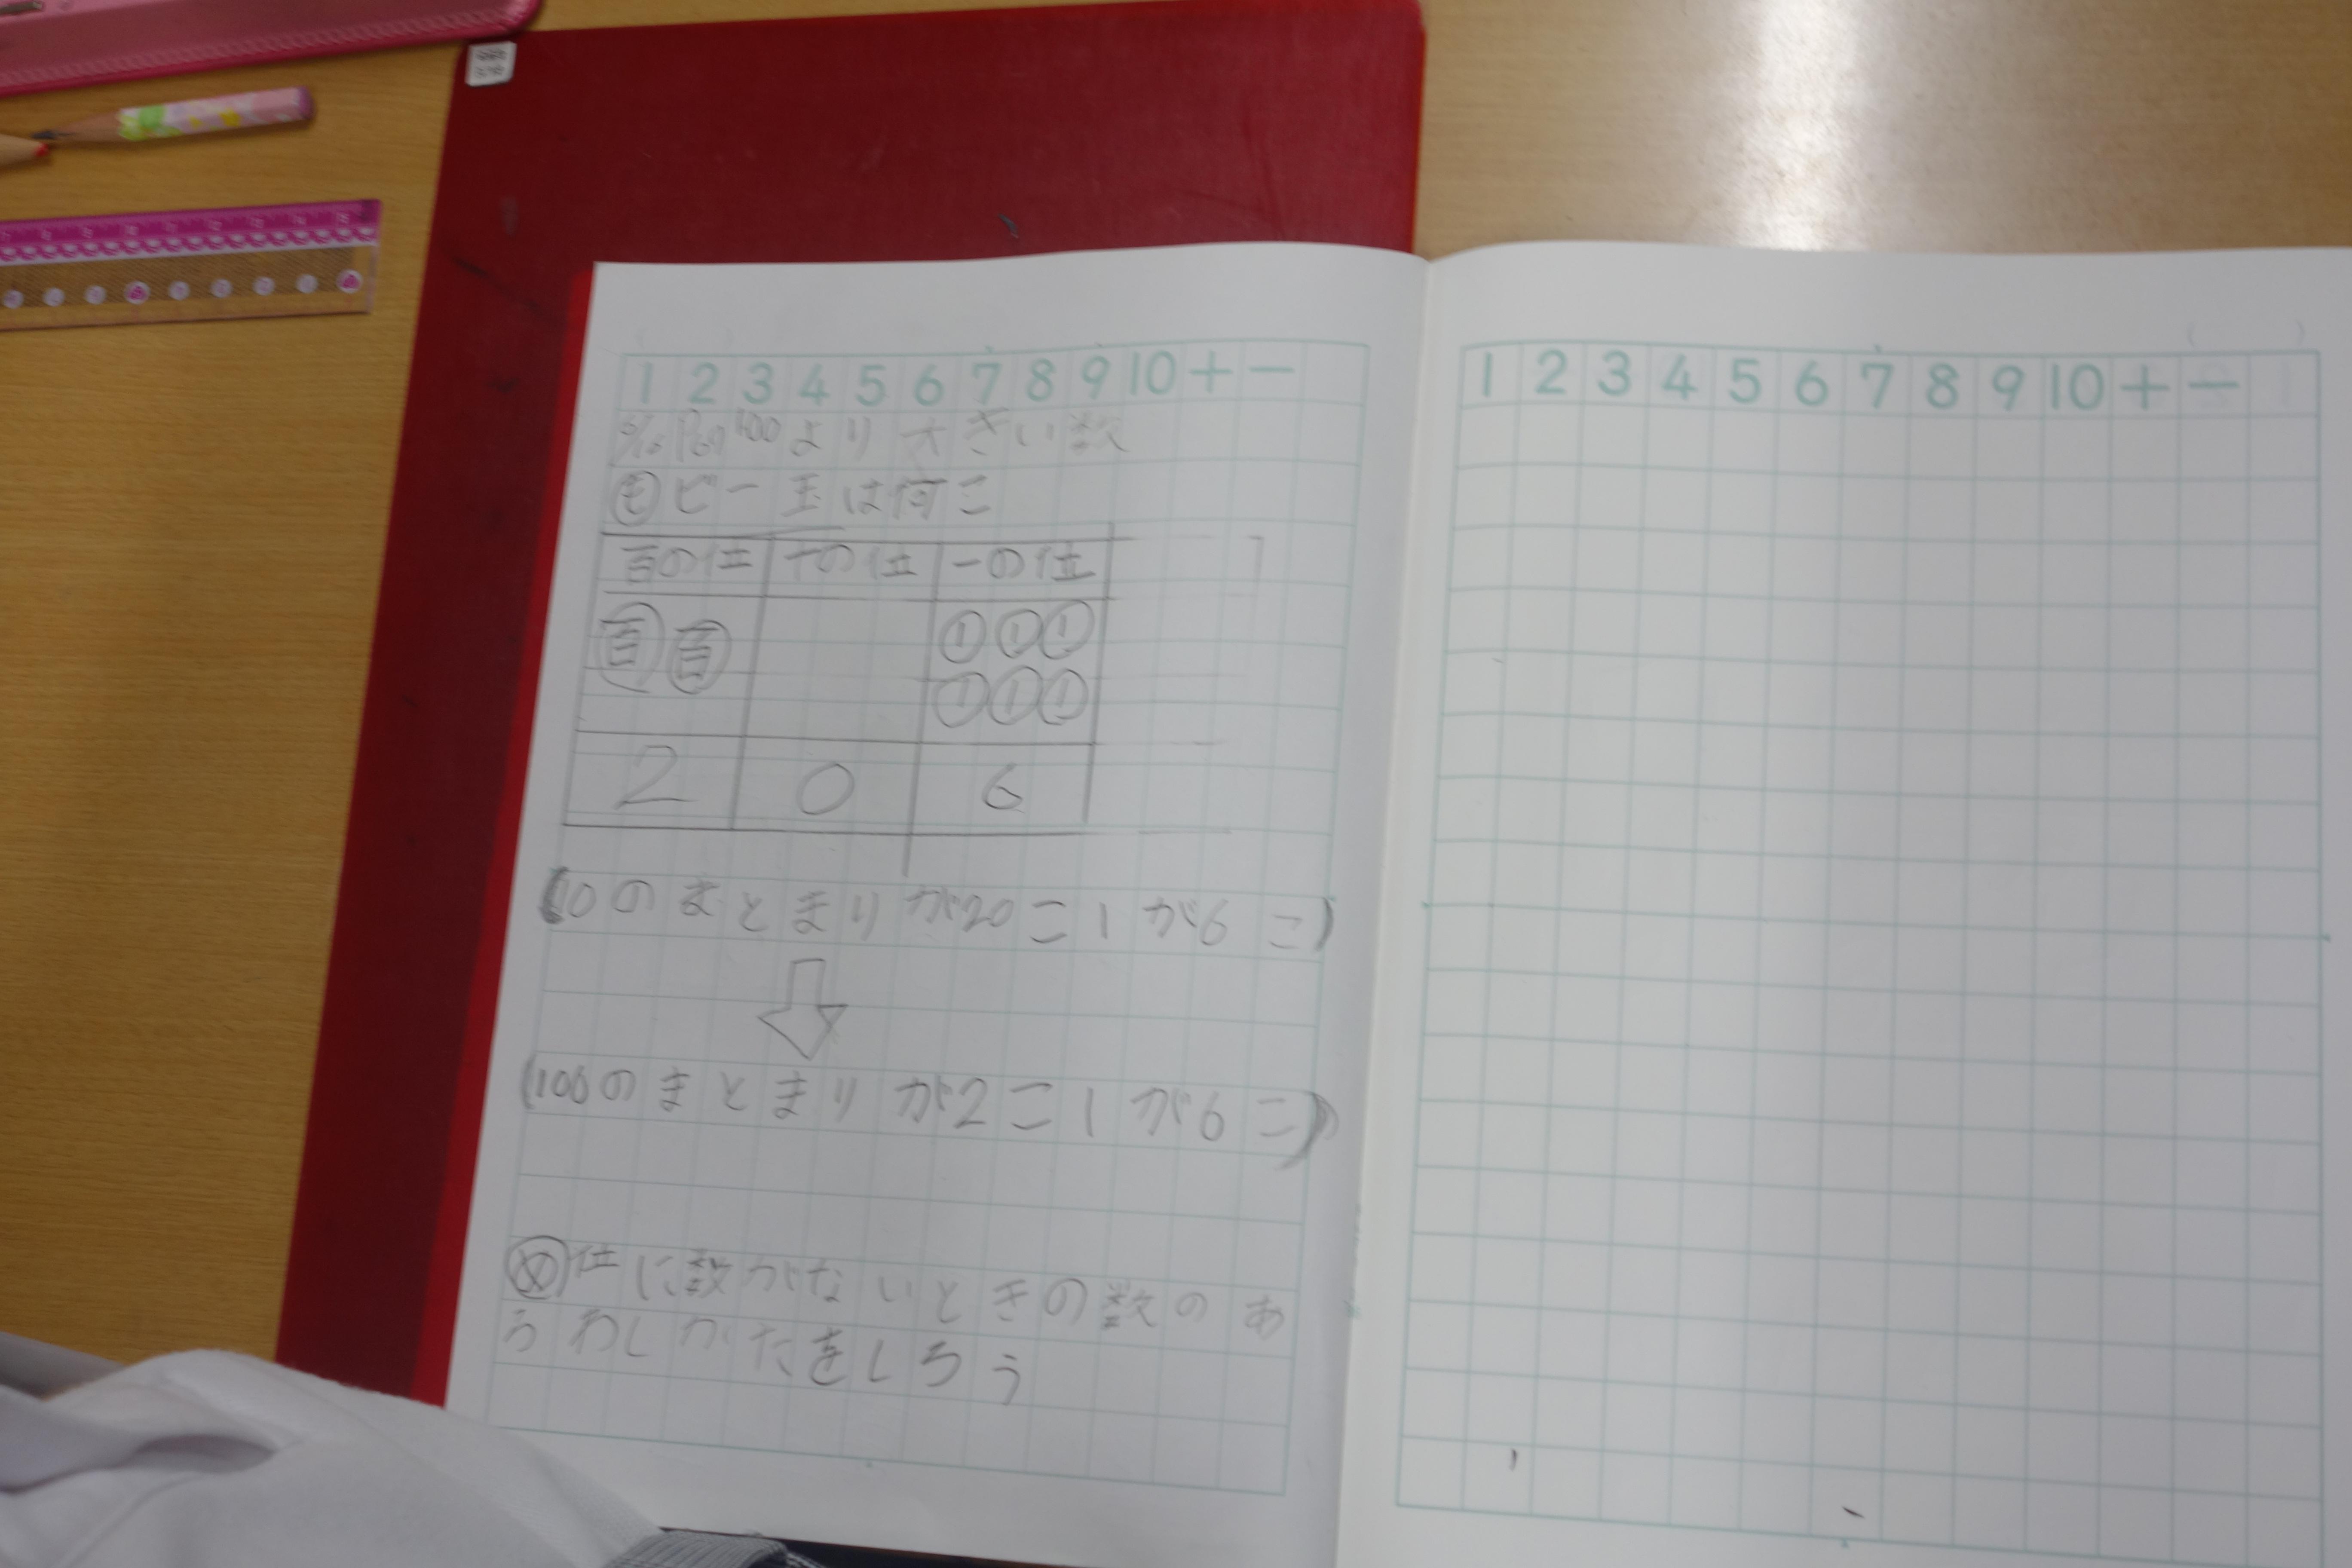 1 2 3 4 5 6 7 8 9 10 + -
P69 100より大きい数
もビー玉は何こ
百の位 十の位 一の位
百 百 1 1 1
1 1 1
2 0 6
(10のまとまりが20こ1が6こ)
(100のまとまりが2こ1が6こ)
め位に数がないときの数のあ
らわしかたをしろう
1 2 3 4 5 6 7 8 9 10 + -